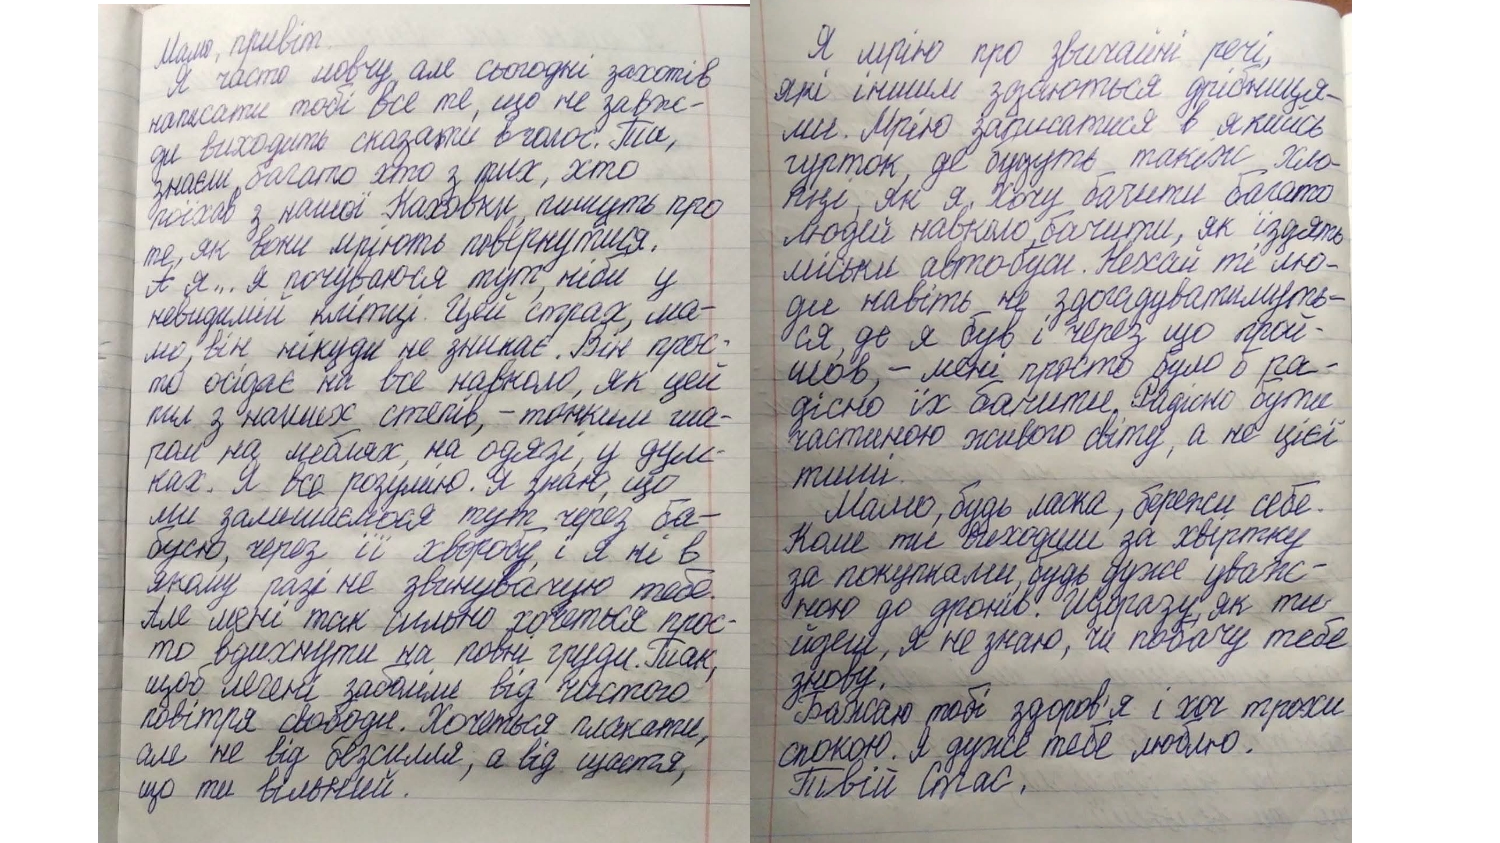 Мамо, привіт.
Я часто мовчу, але сьогодні захотів
написати тобі все те, що не завж-
ди виходить сказати вголос. Ти,
знаєш, багато хто з тих, хто
поїхав з нашої Каховки, пишуть про
те, як вони мріють повернутися.
А я... я почуваюся тут, ніби у
невидимій клітці. Цей страх, ма-
мо, він нікуди не зникає. Він прос-
то осідає на все навколо, як цей
пил з наших степів, – тонким ша-
ром на меблях, на одязі, у дум-
ках. Я все розумію. Я знаю, що
ми залишаємося тут через ба-
бусю, через її хворобу, і я ні в
якому разі не звинувачую тебе.
Але мені так сильно хочеться прос-
то вдихнути на повні груди. Так,
щоб легені заболіли від чистого
повітря свободи. Хочеться плакати,
але не від безсилля, а від щастя,
що ти вільний.
Я мрію про звичайні речі,
які іншим здаються дрібниця-
ми. Мрію записатися в якийсь
гурток, де будуть такіж хло-
пці, як я. Хочу бачити багато
людей навколо, бачити, як їздять
міські автобуси. Нехай ті лю-
ди навіть не здогадуватимуть-
ся, де я був і через що прой-
шов, – мені просто було б ра-
дісно їх бачити. Радісно бути
частиною живого світу, а не цієї
тиші.
Мамо, будь ласка, бережи себе.
Коли ти виходиш за хвіртку
за покупками, будь дуже уваж-
ною до дронів. Щоразу, як ти
йдеш, я не знаю, чи побачу тебе
знову.
Бажаю тобі здоров'я і хоч трохи
спокою. Я дуже тебе люблю.
Твій Стас.